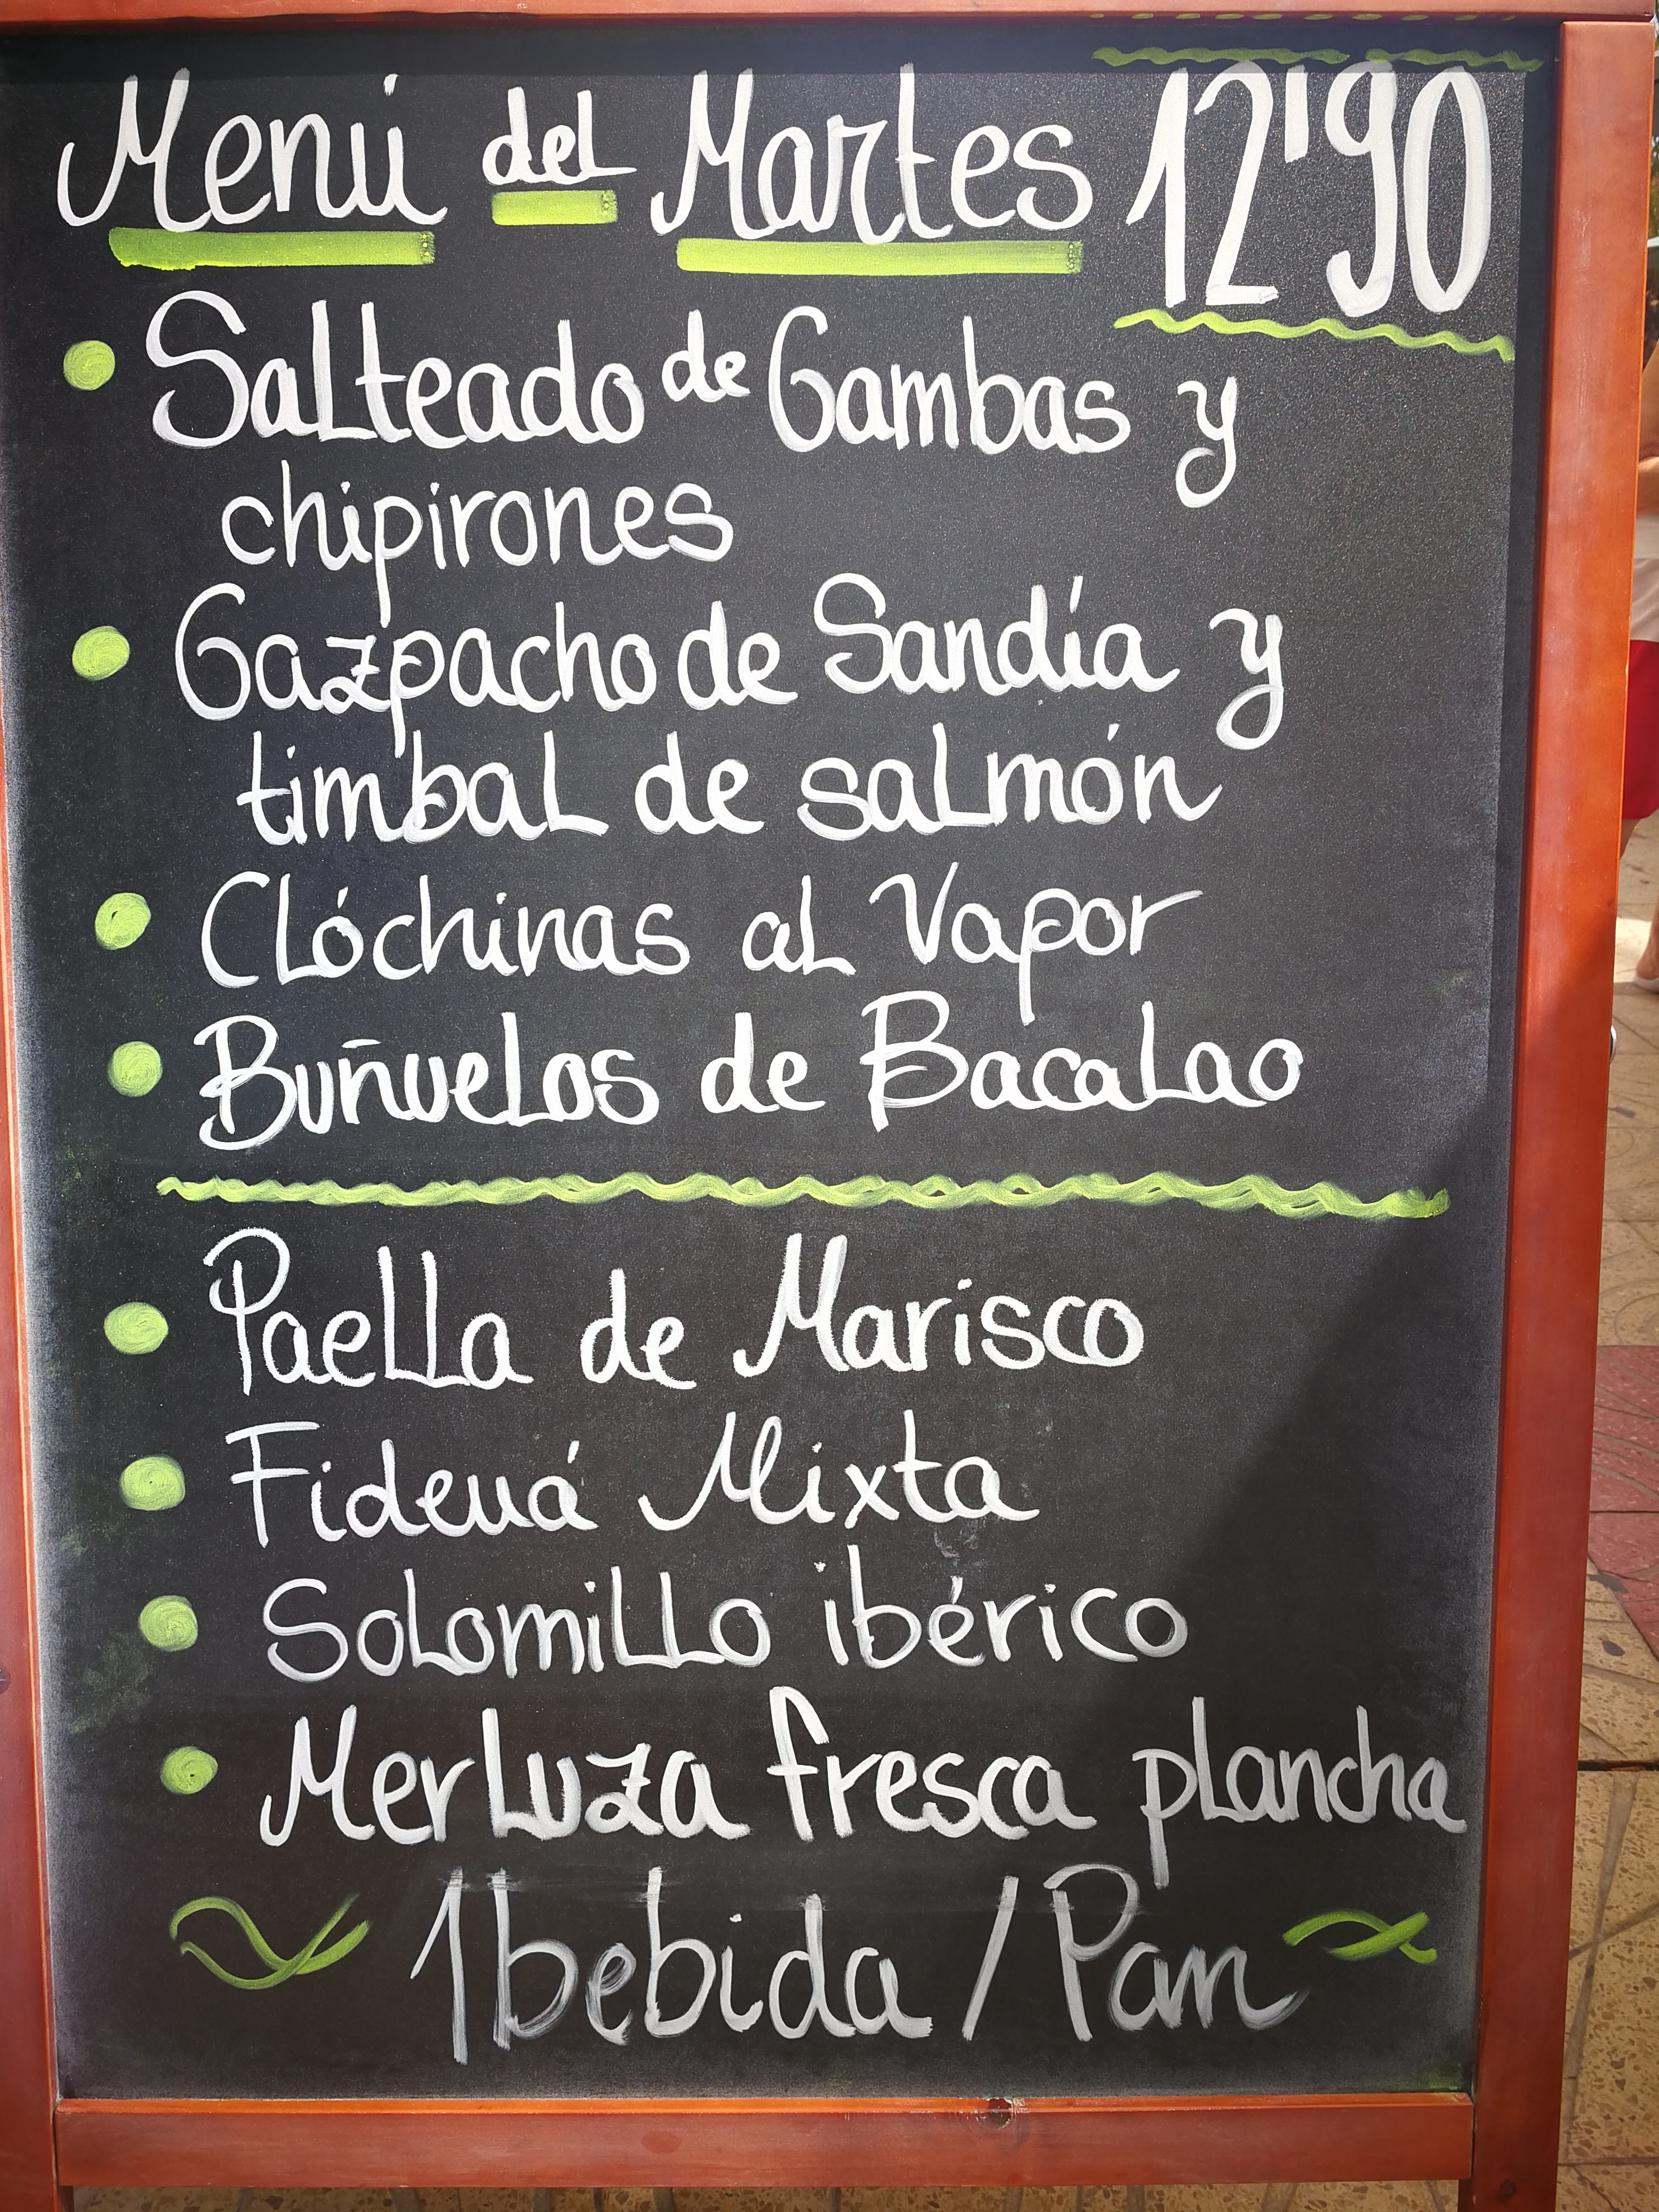 Menú del Martes 12'90
Salteado de Gambas y
chipirones
Gazpacho de Sandía y
timbal de salmón
Clóchinas al Vapor
Buñuelos de Bacalao
Paella de Marisco
Fideuá Mixta
Solomillo ibérico
Merluza fresca plancha
1 bebida / Pan